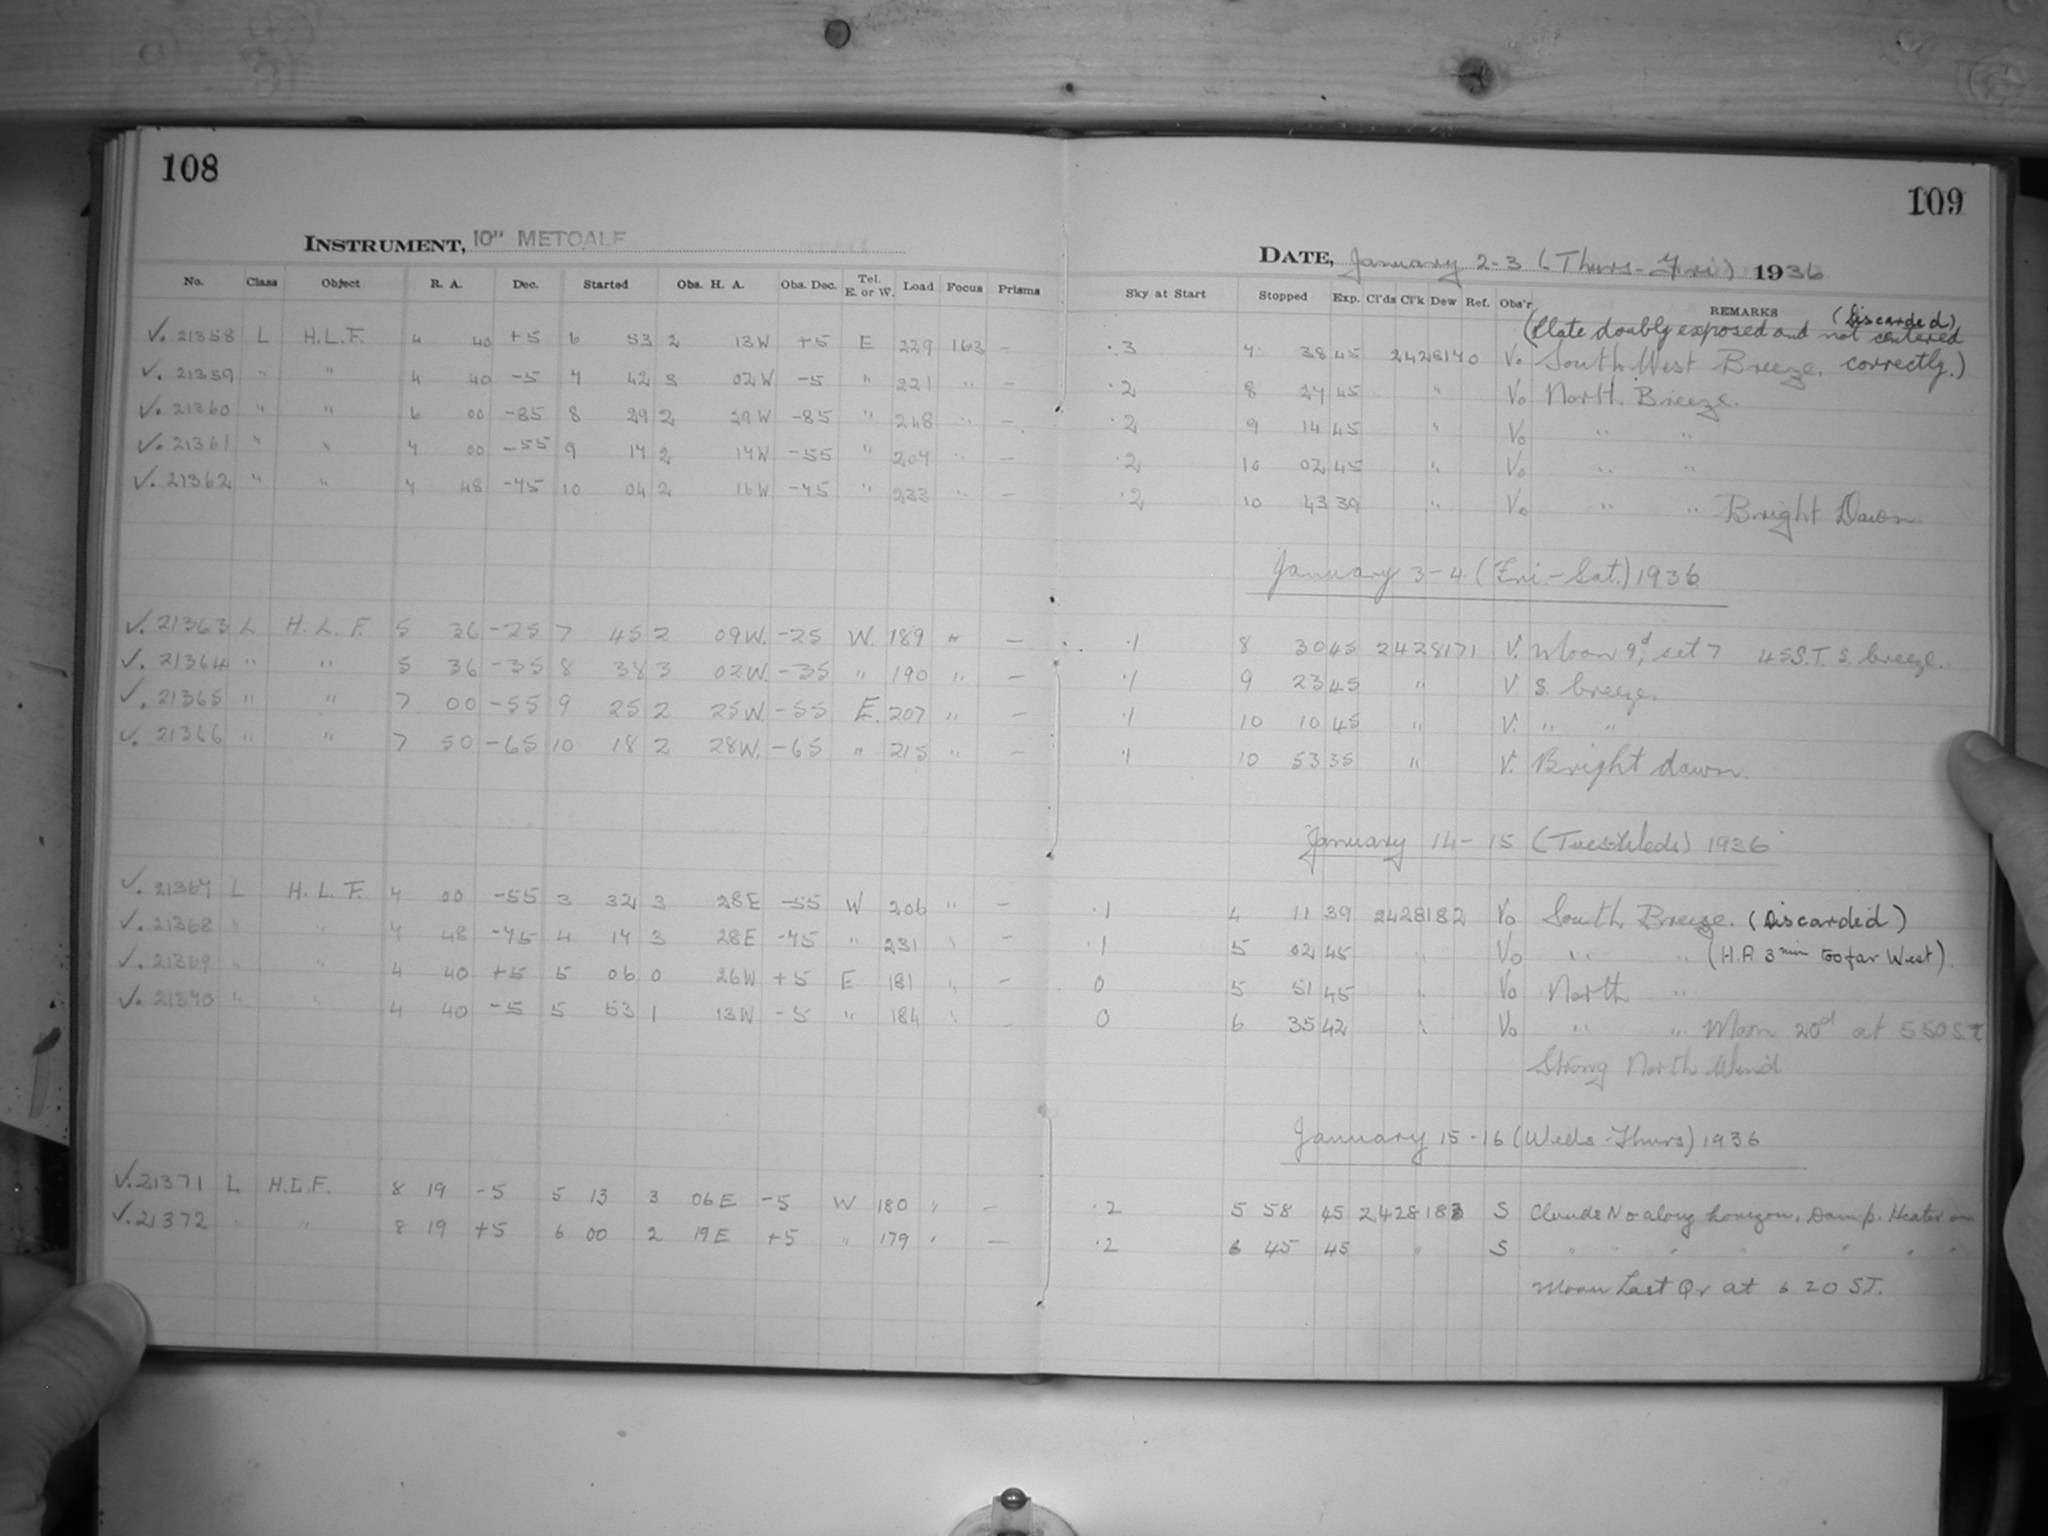 108
109
INSTRUMENT, 10" METCALF
DATE, January 2-3 (Thurs-Fri) 1936
No. Class Object R. A. Dec. Started Obs. H. A. Obs. Dec. Tel. E. or W. Load Focus Prisms Sky at Start Stopped Exp. Cl'ds Cl'k Dew Ref. Obs'r REMARKS
(Discarded)
(Plate doubly exposed and not centered
V. 21358 L H.L.F. 4 40 +5 6 53 2 13W +5 E 229 163 — .3 7 38 45 2428170 Vo South West Breeze. correctly.)
V. 21359 " " 4 40 -5 7 42 3 02W -5 " 221 " — .2 8 27 45 " Vo North Breeze.
V. 21360 " " 6 00 -85 8 29 2 29W -85 " 248 " — .2 9 14 45 " Vo " "
V. 21361 " " 7 00 -55 9 17 2 17W -55 " 207 " — .2 10 02 45 " Vo " "
V. 21362 " " 7 48 -75 10 04 2 16W -75 " 233 " — .2 10 43 39 " Vo " " Bright Dawn
January 3-4 (Fri.-Sat.) 1936
V. 21363 L H. L. F. 5 36 -25 7 45 2 09W. -25 W. 189 " — .1 8 30 45 2428171 V. Moon 9d, set 7 45 S.T. S. breeze.
V. 21364 " " 5 36 -35 8 38 3 02W -35 " 190 " — .1 9 23 45 " V S. breeze.
V. 21365 " " 7 00 -55 9 25 2 25W. -55 E. 207 " — .1 10 10 45 " V. " "
V. 21366 " " 7 50 -65 10 18 2 28W. -65 " 215 " — .1 10 53 35 " V. Bright dawn.
January 14-15 (Tues-Weds) 1936
V. 21367 L H. L. F. 7 00 -55 3 32 3 28E -55 W 206 " — .1 4 11 39 2428182 Vo South Breeze. (Discarded)
V. 21368 " " 7 48 -75 4 17 3 28E -75 " 231 " — .1 5 02 45 " Vo " " (H.A. 3 min too far West).
V. 21369 " " 4 40 +5 5 06 0 26W +5 E 181 " — 0 5 51 45 " Vo North "
V. 21370 " " 4 40 -5 5 53 1 13W -5 " 184 " — 0 6 35 42 " Vo " " Moon 20d at 5 50 S.T.
Strong North Wind.
January 15-16 (Weds-Thurs) 1936
V. 21371 L H.L.F. 8 19 -5 5 13 3 06E -5 W 180 " — .2 5 58 45 2428183 S Clouds No along horizon. Damp. Heater on
V. 21372 " " 8 19 +5 6 00 2 19E +5 " 179 " — .2 6 45 45 " S " " " " " " "
Moon Last Qr at 6 20 ST.